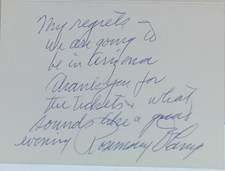 My regrets –
we are going to
be in Arizona
Thank you for
the tickets & what
sounds like a great
evening Rosemary